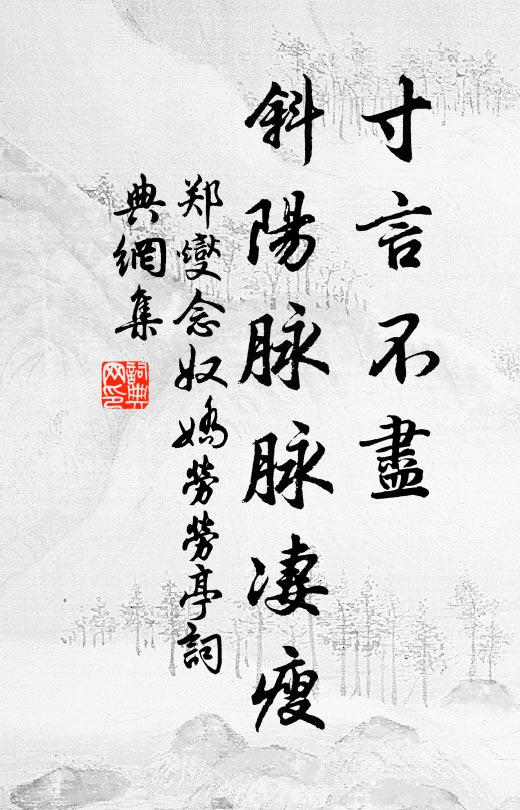 寸言不盡
斜陽脉脉凄瘦
郑燮念奴嬌勞勞亭詞
典網集
詞典
网印